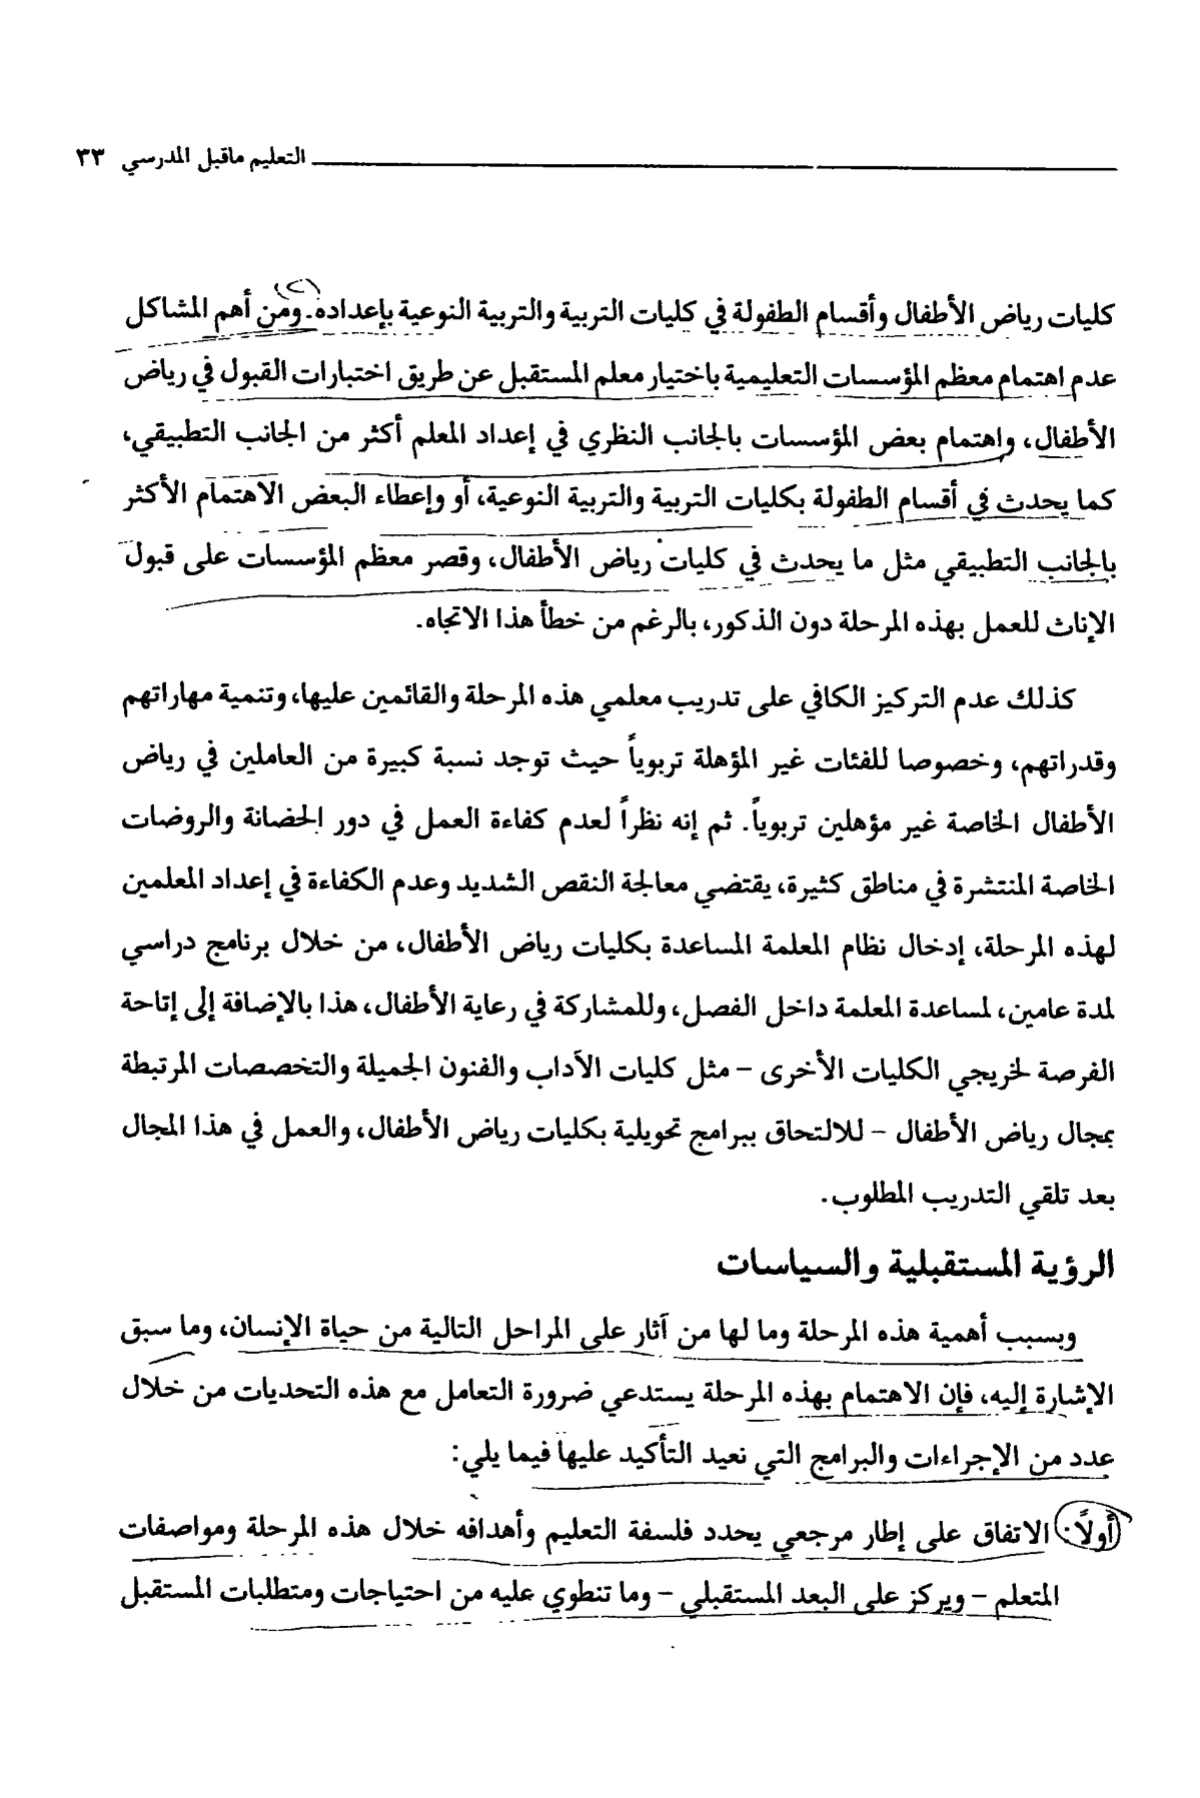 التعليم ماقبل المدرسي ٣٣
كليات رياض الأطفال وأقسام الطفولة في كليات التربية والتربية النوعية بإعداده. ومن أهم المشاكل
عدم اهتمام معظم المؤسسات التعليمية باختيار معلم المستقبل عن طريق اختبارات القبول في رياض
الأطفال، واهتمام بعض المؤسسات بالجانب النظري في إعداد المعلم أكثر من الجانب التطبيقي،
كما يحدث في أقسام الطفولة بكليات التربية والتربية النوعية، أو وإعطاء البعض الاهتمام الأكثر
بالجانب التطبيقي مثل ما يحدث في كليات رياض الأطفال، وقصر معظم المؤسسات على قبول
الإناث للعمل بهذه المرحلة دون الذكور، بالرغم من خطأ هذا الاتجاه.
كذلك عدم التركيز الكافي على تدريب معلمي هذه المرحلة والقائمين عليها، وتنمية مهاراتهم
وقدراتهم، وخصوصا للفئات غير المؤهلة تربوياً حيث توجد نسبة كبيرة من العاملين في رياض
الأطفال الخاصة غير مؤهلين تربوياً. ثم إنه نظراً لعدم كفاءة العمل في دور الحضانة والروضات
الخاصة المنتشرة في مناطق كثيرة، يقتضي معالجة النقص الشديد وعدم الكفاءة في إعداد المعلمين
لهذه المرحلة، إدخال نظام المعلمة المساعدة بكليات رياض الأطفال، من خلال برنامج دراسي
لمدة عامين، لمساعدة المعلمة داخل الفصل، وللمشاركة في رعاية الأطفال، هذا بالإضافة إلى إتاحة
الفرصة لخريجي الكليات الأخرى - مثل كليات الآداب والفنون الجميلة والتخصصات المرتبطة
بمجال رياض الأطفال - للالتحاق ببرامج تحويلية بكليات رياض الأطفال، والعمل في هذا المجال
بعد تلقي التدريب المطلوب.
الرؤية المستقبلية والسياسات
وبسبب أهمية هذه المرحلة وما لها من آثار على المراحل التالية من حياة الإنسان، وما سبق
الإشارة إليه، فإن الاهتمام بهذه المرحلة يستدعي ضرورة التعامل مع هذه التحديات من خلال
عدد من الإجراءات والبرامج التي نعيد التأكيد عليها فيما يلي:
أولاً: الاتفاق على إطار مرجعي يحدد فلسفة التعليم وأهدافه خلال هذه المرحلة ومواصفات
المتعلم - ويركز على البعد المستقبلي - وما تنطوي عليه من احتياجات ومتطلبات المستقبل